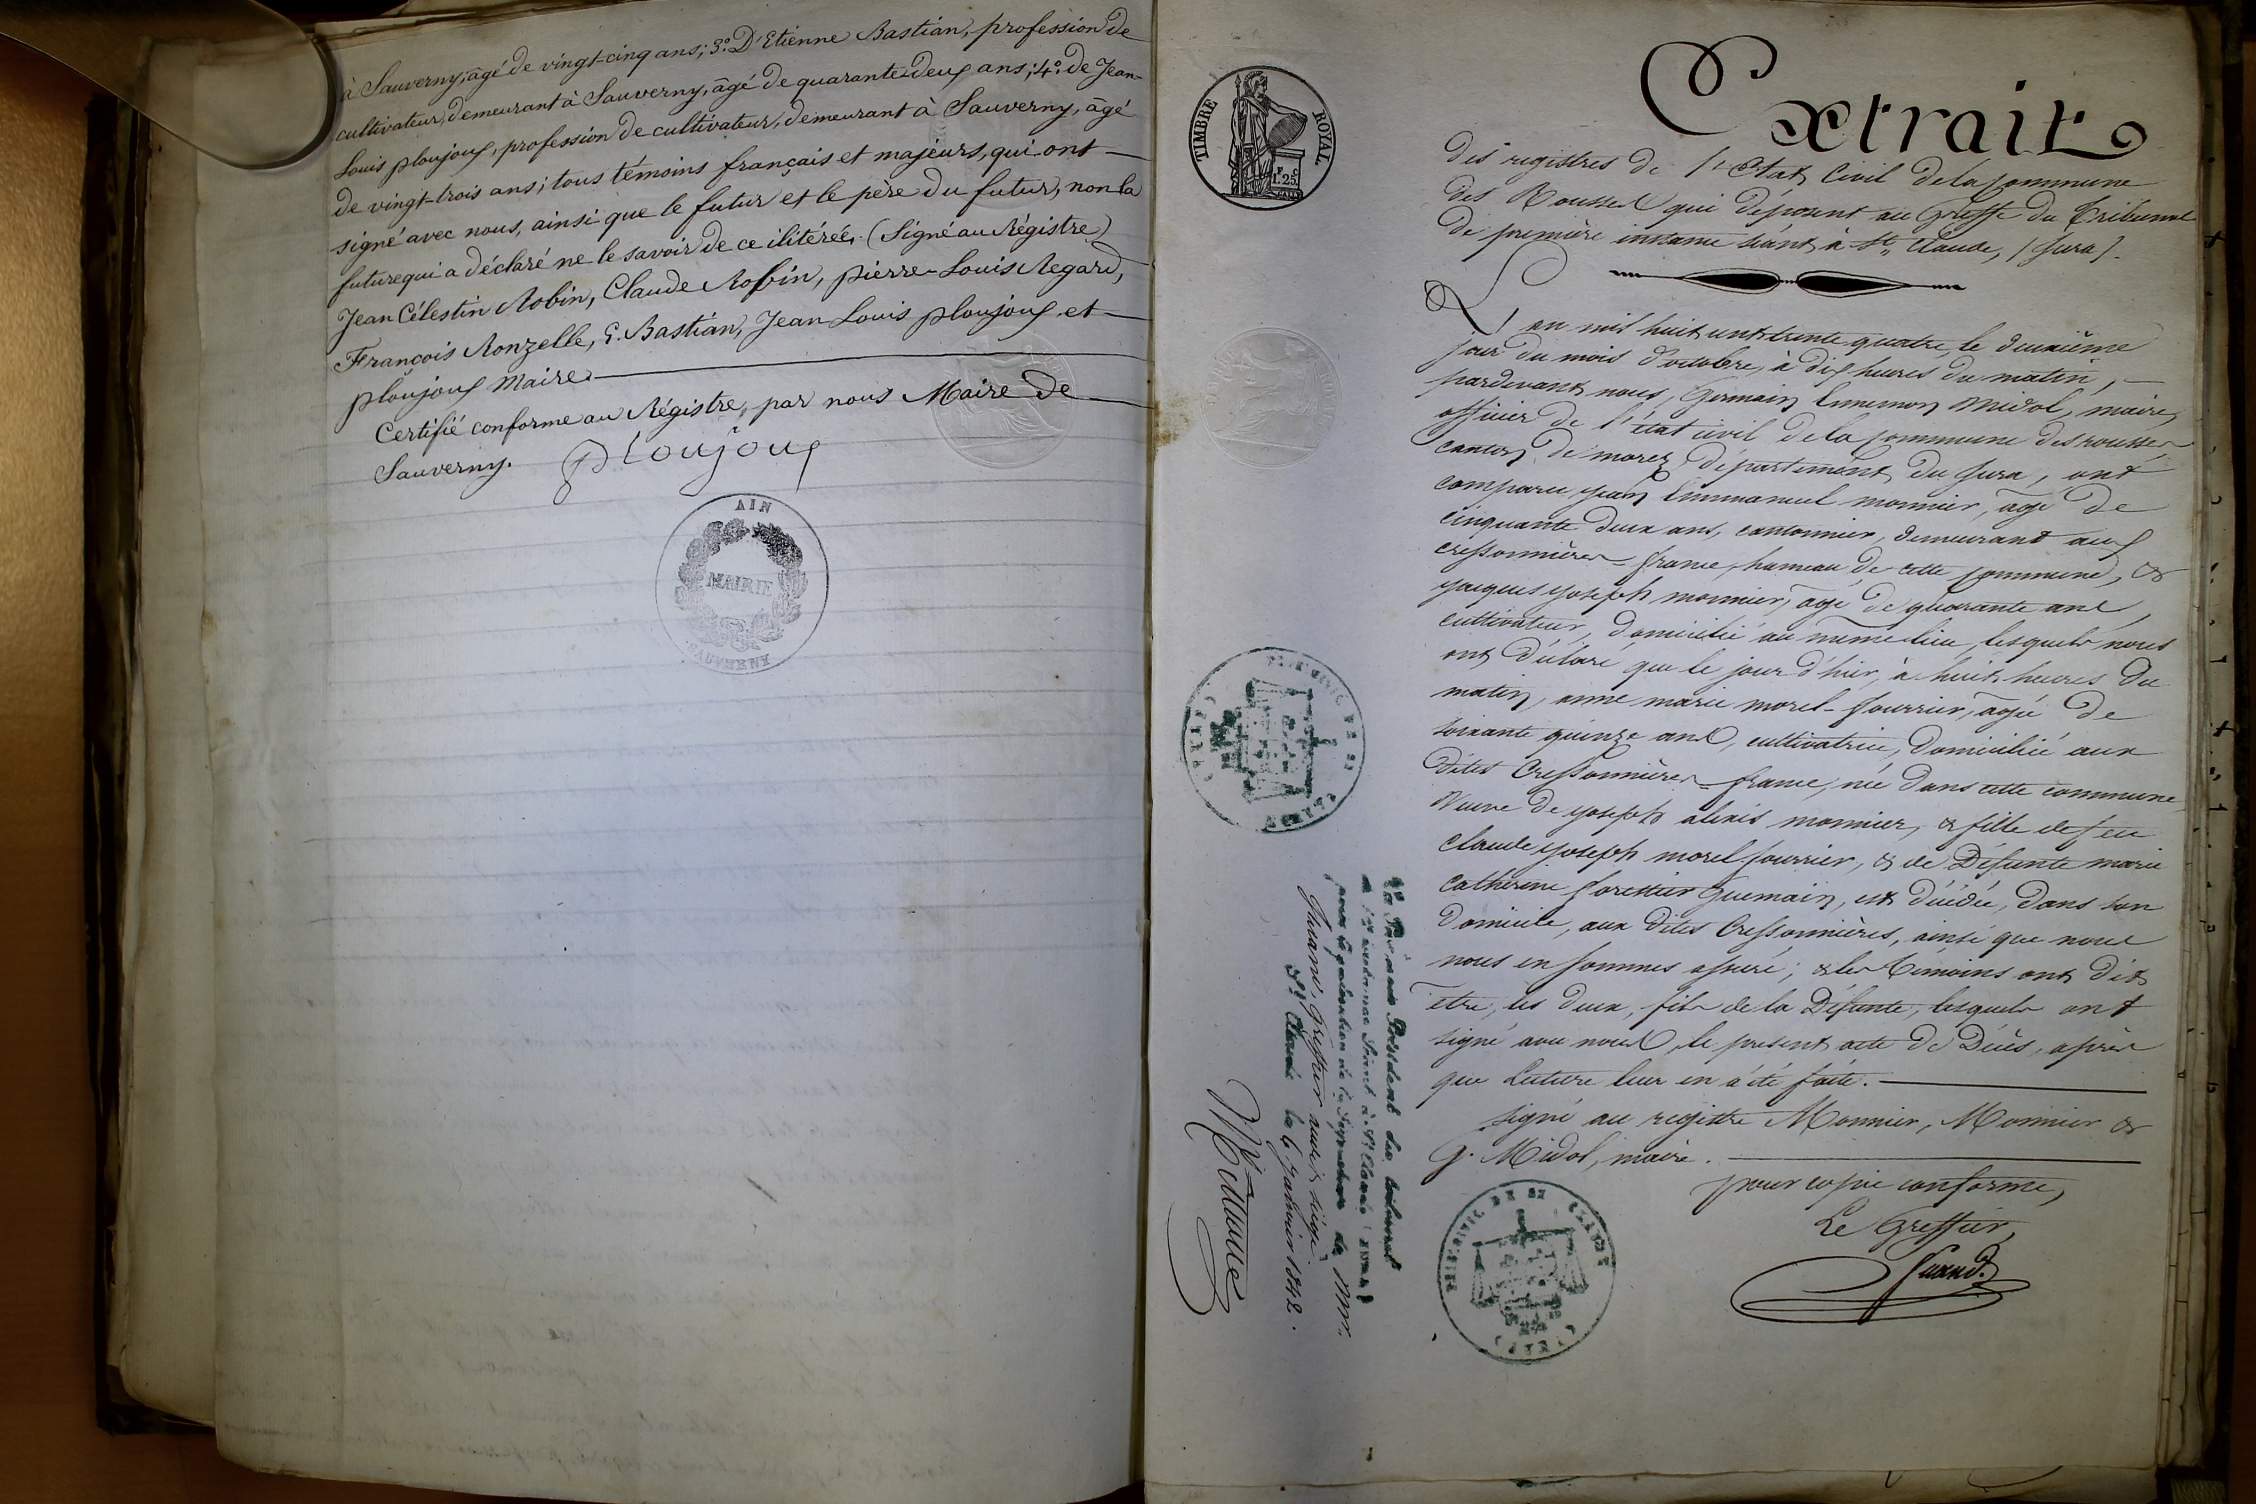 à Sauverny, âgé de vingt-cinq ans; 3º D'Etienne Bastian, profession de
cultivateur, demeurant à Sauverny, âgé de quarante deux ans; 4º de Jean-
Louis ploujoux, profession de cultivateur, demeurant à Sauverny, âgé
de vingt-trois ans; tous témoins français et majeurs, qui ont
signé avec nous, ainsi que le futur et le père du futur, non la
future qui a déclaré ne le savoir de ce ilitérée. (Signé au Régistre)
Jean Célestin Robin, Claude Robin, pierre-Louis Regard,
François Ronzelle, E. Bastian, Jean Louis ploujoux et
ploujoux Maire.
Certifié conforme au Régistre, par nous Maire de
Sauverny.
ploujoux
AIN
MAIRIE
SAUVERNY
TIMBRE ROYAL
Extrait
des registres de l'Etat Civil de la commune
des Rousses qui déposent au Greffe du Tribunal
de première instance séant à St Claude, (Jura).
L'an mil huit cent trente quatre, le deuxième
jour du mois d'octobre, à dix heures du matin,
pardevant nous, Germain Midol, maire,
officier de l'état civil de la commune des rousses
canton de morez, département du Jura, ont
comparu jean Emmanuel monnier, âgé de
cinquante deux ans, cantonnier, demeurant aux
cressonnières-france, hameau de cette commune, &
jacques joseph monnier, âgé de quarante ans,
cultivateur, domicilié au même lieu, lesquels nous
ont déclaré que le jour d'hier, à huit heures du
matin, anne marie morel-fourrier, âgée de
soixante quinze ans, cultivatrice, domiciliée aux
dites Cressonnières-france, née dans cette commune
Veuve de joseph alexis monnier, & fille de feu
claude joseph morel-fourrier, & de défunte marie
catherine forestier Guemain, est décédée, dans son
domicile, aux dites Cressonnières, ainsi que nous
nous en sommes assuré; & les témoins ont dit
être, les deux, fils de la défunte, lesquels ont
signé avec nous, le présent acte de Décès, après
que lecture leur en a été faite.
signé au registre Monnier, Monnier &
G. Midol, maire.
pour copie conforme,
Le Greffier,
TRIB. CIVIL DE ST CLAUDE
(JURA)
TRIB. CIVIL DE ST CLAUDE
(JURA)
Président du tribunal
de 1re instance Séant à St Claude (JURA)
pour légalisation de la Signature de Mr.
greffier audit siège
St Claude le 6 janvier 1842.